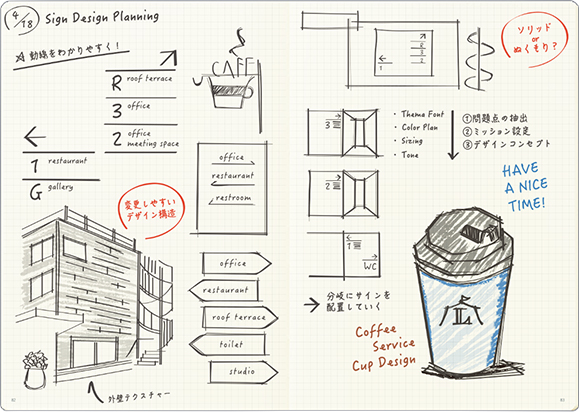 4/18
Sign Design Planning
☆動線をわかりやすく！
R roof terrace
3 office
2 office
meeting space
1 restaurant
G gallery
CAFE
変更しやすい
デザイン構造
office
restaurant
restroom
office
restaurant
roof terrace
toilet
studio
外壁テクスチャー
R
3
2
1
ソリッド
or
ぬくもり？
3
2
1
WC
・Thema Font
・Color Plan
・Sizing
・Tone
①問題点の抽出
②ミッション設定
③デザインコンセプト
HAVE
A NICE
TIME!
分岐にサインを
配置していく
Coffee
Service
Cup Design
82
83